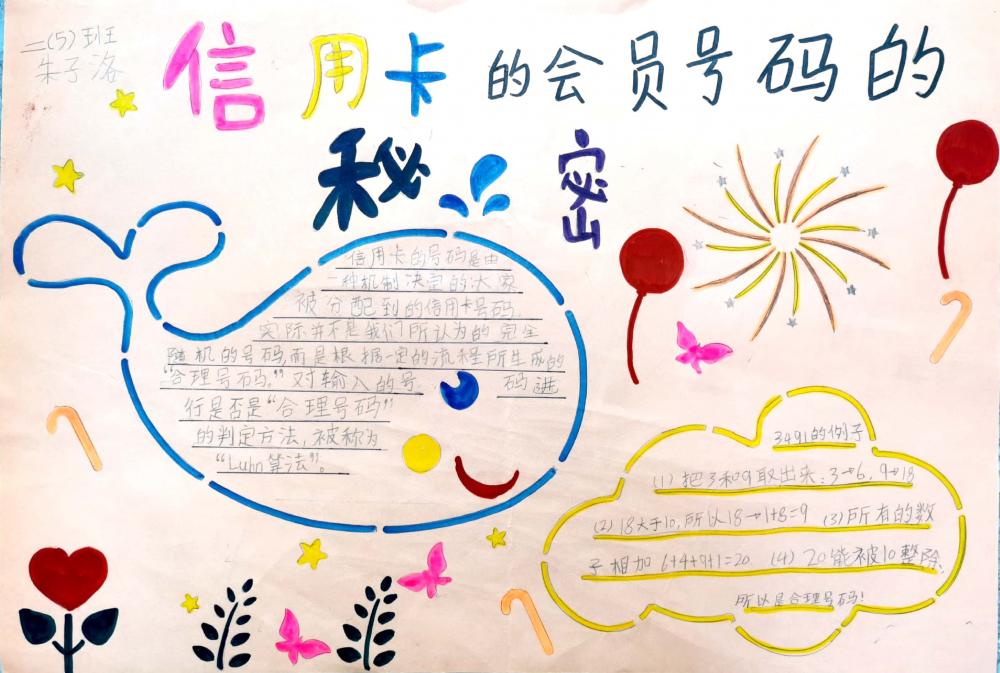 二(5)班
朱子洛
信用卡的会员号码的
秘密
信用卡的号码是由
一种机制决定的大家
被分配到的信用卡号码.
实际并不是我们所认为的完全
随机的号码而是根据一定的流程所生成的
“合理号码.”对输入的号码进
行是否是“合理号码”
的判定方法,被称为
“Luhn算法”。
3491的例子
(1)把3和9取出来:3→6,9→18
(2)18大于10,所以18→1+8=9 (3)所有的数
子相加6+4+9+1=20 (4)20能被10整除.
所以是合理号码!